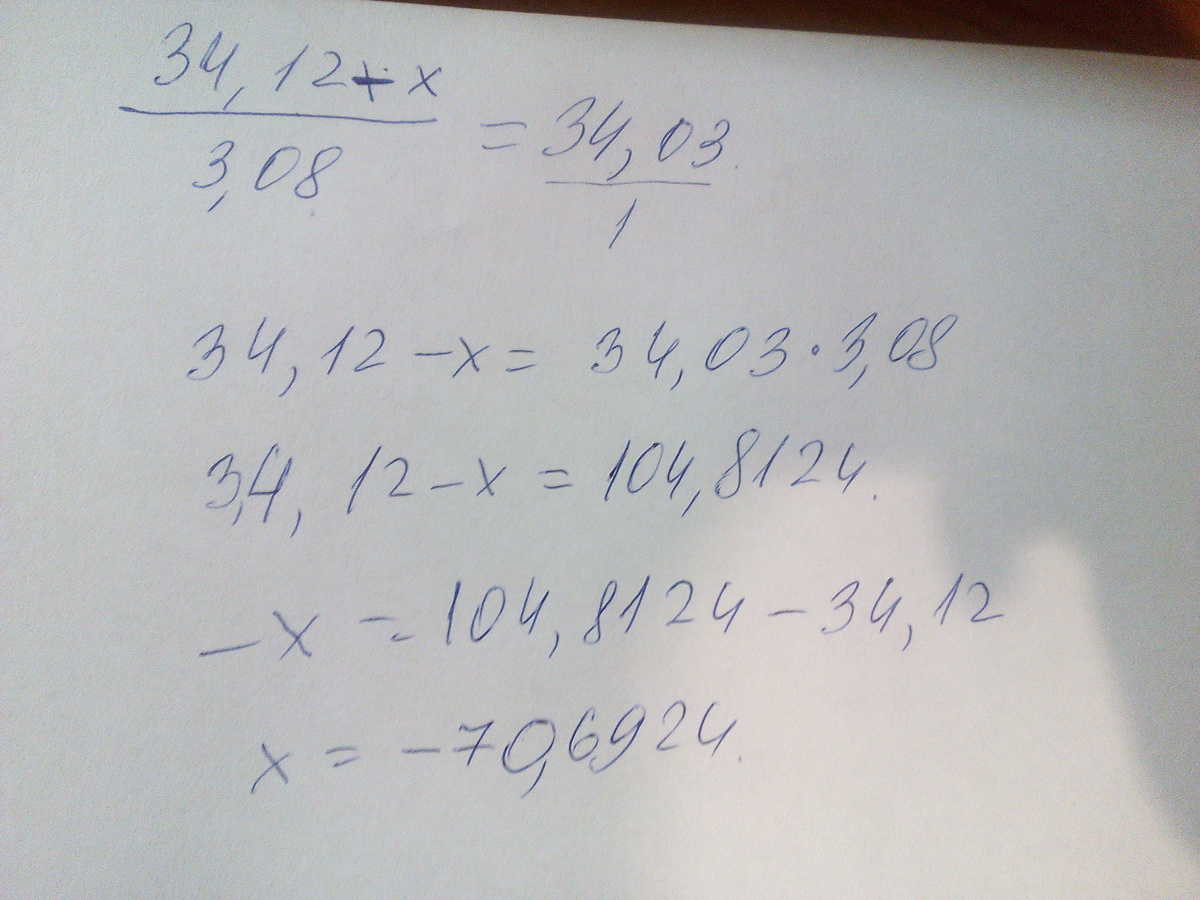 34,12 - x
3,08
= 34,03
1
34,12 - x = 34,03 · 3,08
34, 12 - x = 104,8124.
- x = 104,8124 - 34,12
x = -70,6924.